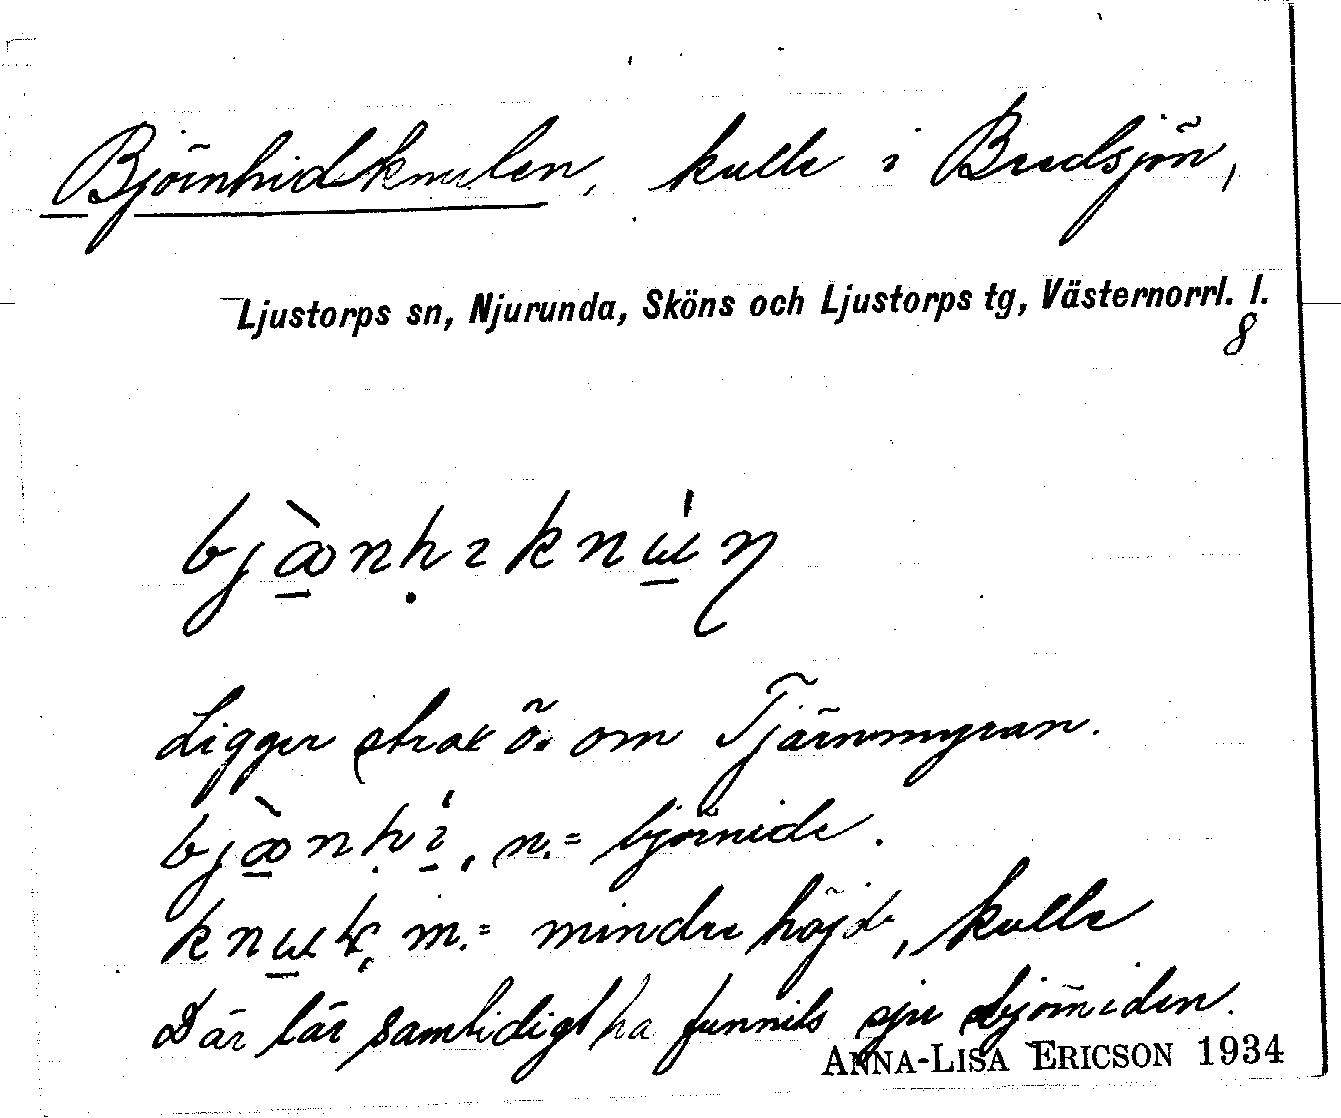 Björnhidknulen, kulle i Bredsjön,
Ljustorps sn, Njurunda, Sköns och Ljustorps tg, Västernorrl. l.
8
Ligger strax ö. om Tjärnmyran.
n. = björnide.
m. = mindre höjd, kulle
Där lär samtidigt ha funnits sju björniden.
ANNA-LISA ERICSON 1934